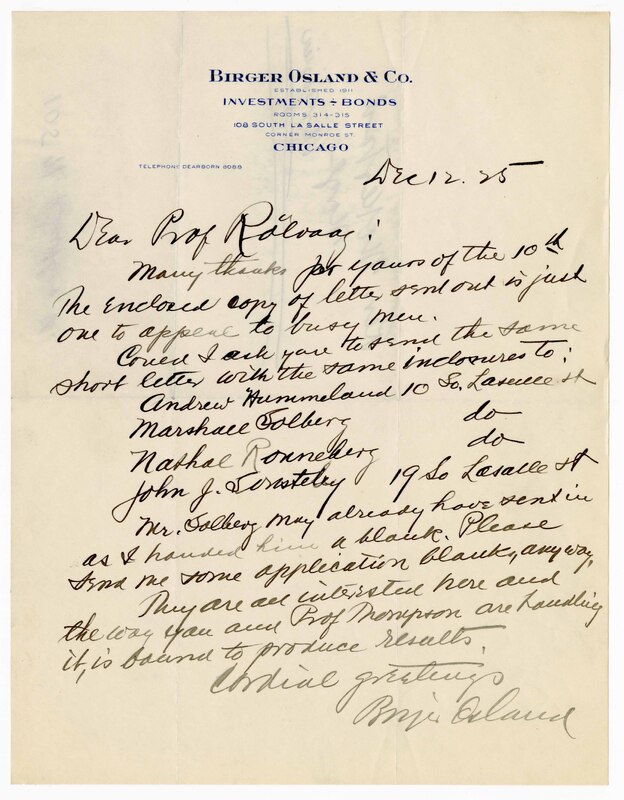 BIRGER OSLAND & CO.
ESTABLISHED 1911
INVESTMENTS ÷ BONDS
ROOMS 314-315
108 SOUTH LA SALLE STREET
CORNER MONROE ST.
CHICAGO
TELEPHONE DEARBORN 8088
Dec 12. 25
Dear Prof Rölvaag:
Many thanks for yours of the 10th
The enclosed copy of letter sent out is just
one to appeal to busy men.
Could I ask you to send the same
short letter with the same inclosures to:
Andrew Hummeland 10 So. Lasalle St
Marshall Solberg do
Nathal Ronneberg do
John J. 19 So Lasalle St
Mr. Solberg may already have sent in
as I handed him a blank. Please
send me some application blanks, anyway.
They are all interested here and
the way you and Prof Thompson are handling
it, is bound to produce results.
Cordial greetings
Birger Osland